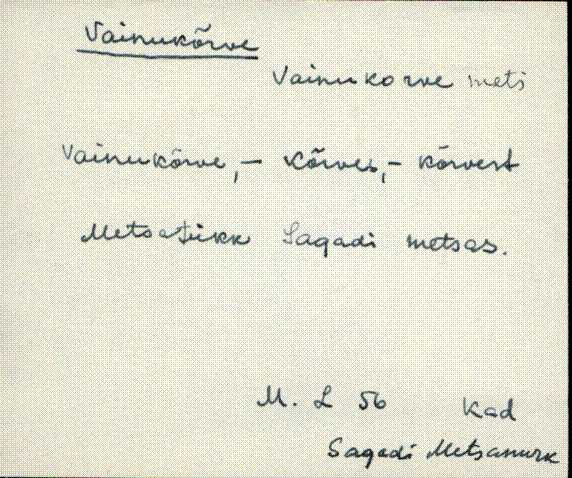 Vainukõrve
Vainukorve mets
Vainukõrve, – kõrves, – kõrvest
Metsatükk Sagadi metsas.
M. L 56 Kad
Sagadi Metsanurk